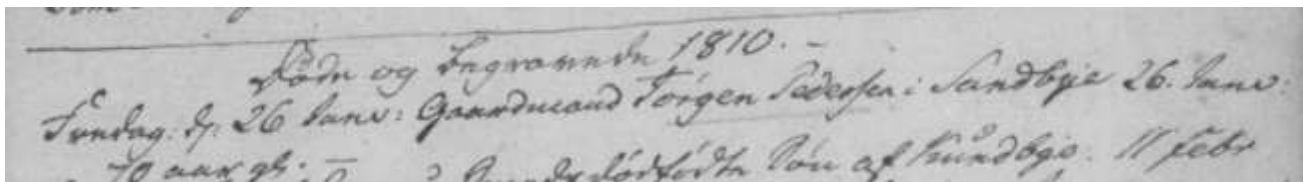 Døde og begravede 1810. –
Fredag. d. 26 Janv: Gaardmand Jørgen Pedersen i Sandbye 26. Janv:
70 aar gl. – dødfødte Søn af Kundbye. 11 Febr